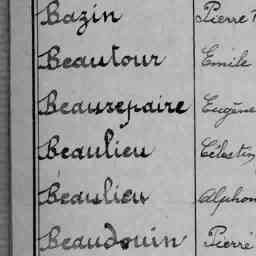 Bazin Pierre
Beautour Emile
Beaurepaire Eugène
Beaulieu Célestin
Beaulieu Alphon
Beaudouin Pierre